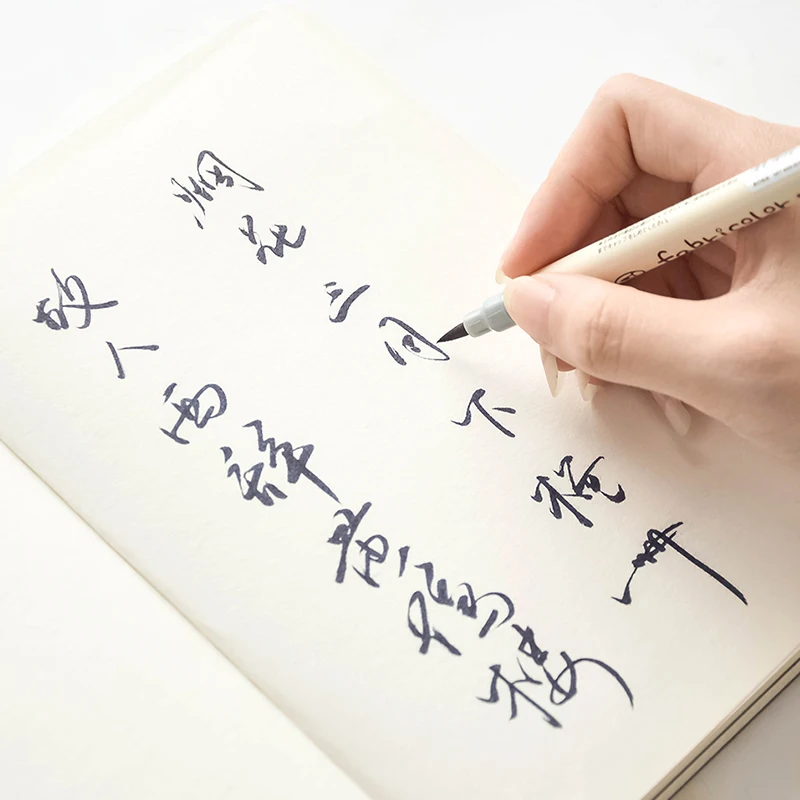 故人西辞黄鹤楼
烟花三月下扬州
fabricolor